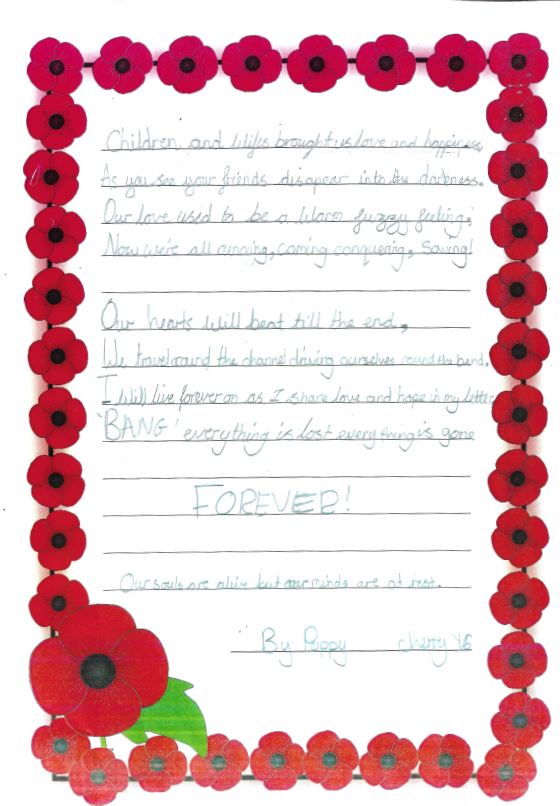 Children and Wifes brought us love and happiness,
As you see your friends disapear into the darkness.
Our love used to be a Warm fuzzy feeling,
Now we're all running, coming conquering, Saving!
Our hearts Will beat till the end,
We travel around the channel driving ourselves round the bend.
I Will live forever on as I share love and hope in my letter
'BANG' everything is lost everything is gone
FOREVER!
Our souls are alive but our minds are at rest.
By Poppy cherry Y6